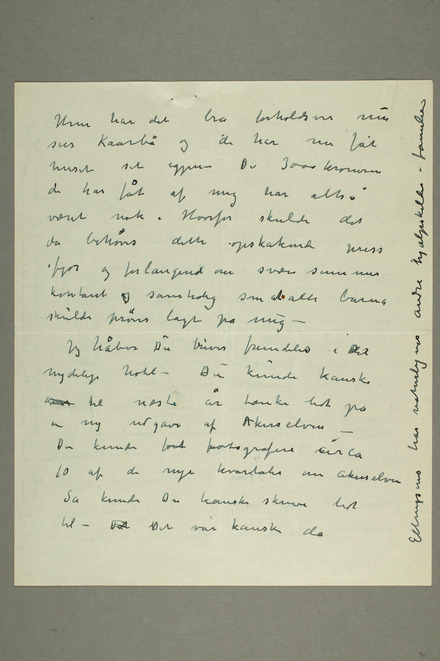 Hun har det bra forholdsvis nu
sier Kaarbø og de har nu fåt
huset sit igjen. De 3000 kronerne
de har fåt af mig har altså
været nok. Hvorfor skulde det
da behøves dette opskakende press
ifjor og forlangende om svære summer
kontant og samtidig som alle barna
skulde prøves lagt på mig —
Jeg håber Du trives fremdeles i det
nydelige hotel — Du kunde kanske
til næste år tænke lidt på
en ny udgave af Akerselven —
Du kunde fotografere circa
10 af de nye kvartaler om Akerselven
Så kunde Du kanske skrive lidt
til — Det var kanske da
har naturligvis andre hjælpekilder i familien